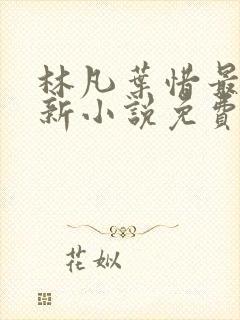 林凡葉惜最
新小說免費
花姒